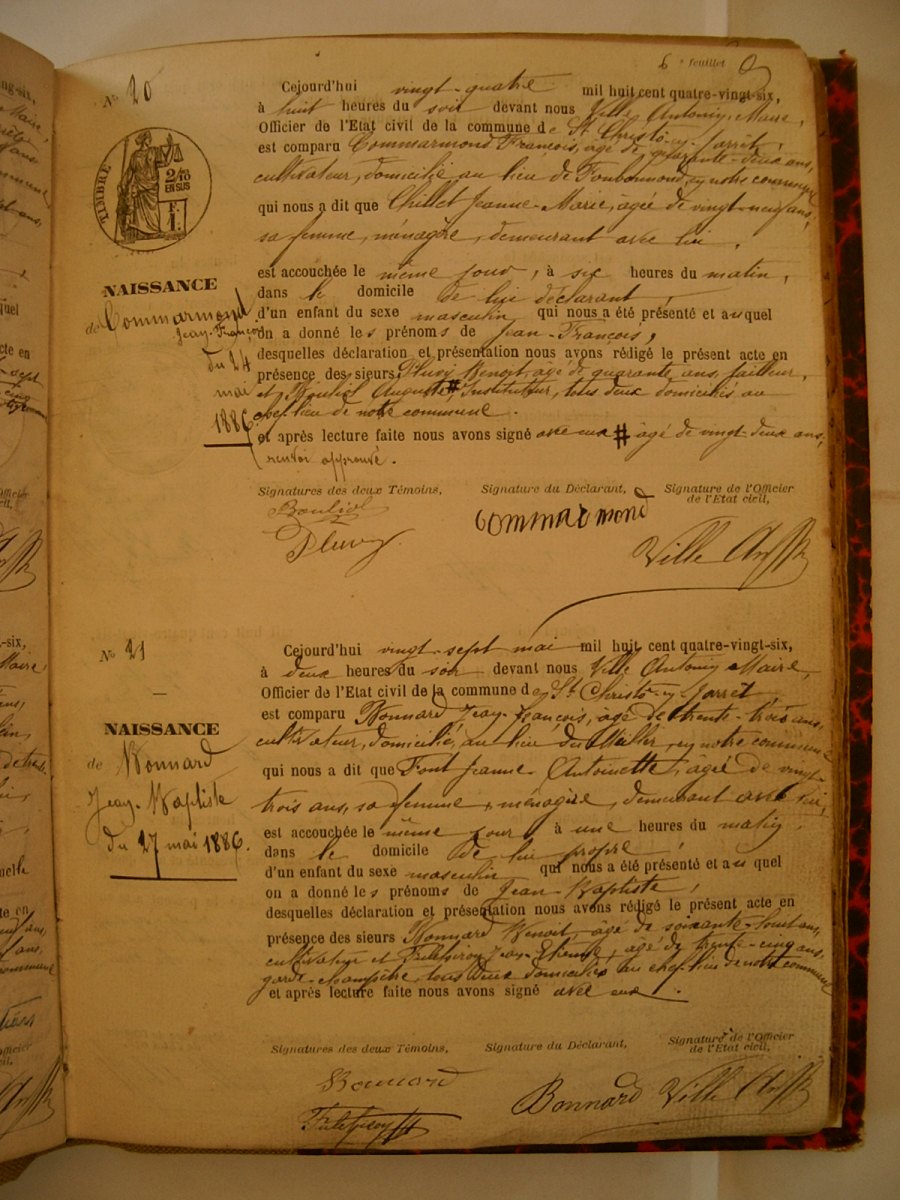 6e feuillet
No 20
TIMBRE
2/10
EN SUS
F.
1.
NAISSANCE
de Commarmond
Jean-François
du 24
mai
1886.
Cejourd'hui vingt-quatre mil huit cent quatre-vingt-six,
à huit heures du soir devant nous Ville Antoine, Maire,
Officier de l'Etat civil de la commune de St Christô-en-Jarret,
est comparu Commarmond François, âgé de quarante-deux ans,
cultivateur, domicilié au lieu de Fontbonmond, en notre commune
qui nous a dit que Chillet Jeanne-Marie, agée de vingt-neuf ans,
sa femme, ménagère, demeurant avec lui,
est accouchée le même jour, à six heures du matin,
dans le domicile de lui déclarant,
d'un enfant du sexe masculin qui nous a été présenté et auquel
on a donné les prénoms de Jean-François,
desquelles déclaration et présentation nous avons rédigé le présent acte en
présence des sieurs Pluvy Benoit, âgé de quarante ans, tailleur,
et Bouliol Auguste #, Instituteur, tous deux domiciliés au
chef-lieu de notre commune.
et après lecture faite nous avons signé avec eux # âgé de vingt-deux ans,
renvoi approuvé.
Signatures des deux Témoins,
Signature du Déclarant,
Signature de l'Officier
de l'Etat civil,
Bouliol
Commarmond
Pluvy
Ville
No 21
NAISSANCE
de Bonnard
Jean-Baptiste
du 27 mai 1886.
Cejourd'hui vingt-sept mai mil huit cent quatre-vingt-six,
à deux heures du soir devant nous Ville Antoine Maire,
Officier de l'Etat civil de la commune de St Christô-en-Jarret
est comparu Bonnard Jean-François, âgé de trente-trois ans,
cultivateur, domicilié, au lieu du en notre commune
qui nous a dit que Font Jeanne-Antoinette, agée de vingt-
trois ans, sa femme, ménagère, demeurant avec lui,
est accouchée le même jour à une heures du matin
dans le domicile de lui propre,
d'un enfant du sexe masculin qui nous a été présenté et auquel
on a donné les prénoms de Jean-Baptiste,
desquelles déclaration et présentation nous avons rédigé le présent acte en
présence des sieurs Bonnard Benoit, âgé de soixante-huit ans,
cultivateur et Jean-Etienne, agé de trente-cinq ans,
garde-champêtre, tous deux domiciliés au chef-lieu de notre commune
et après lecture faite nous avons signé avec eux.
Signatures des deux Témoins,
Signature du Déclarant,
Signature de l'Officier
de l'Etat civil,
Bonnard
Bonnard
Ville